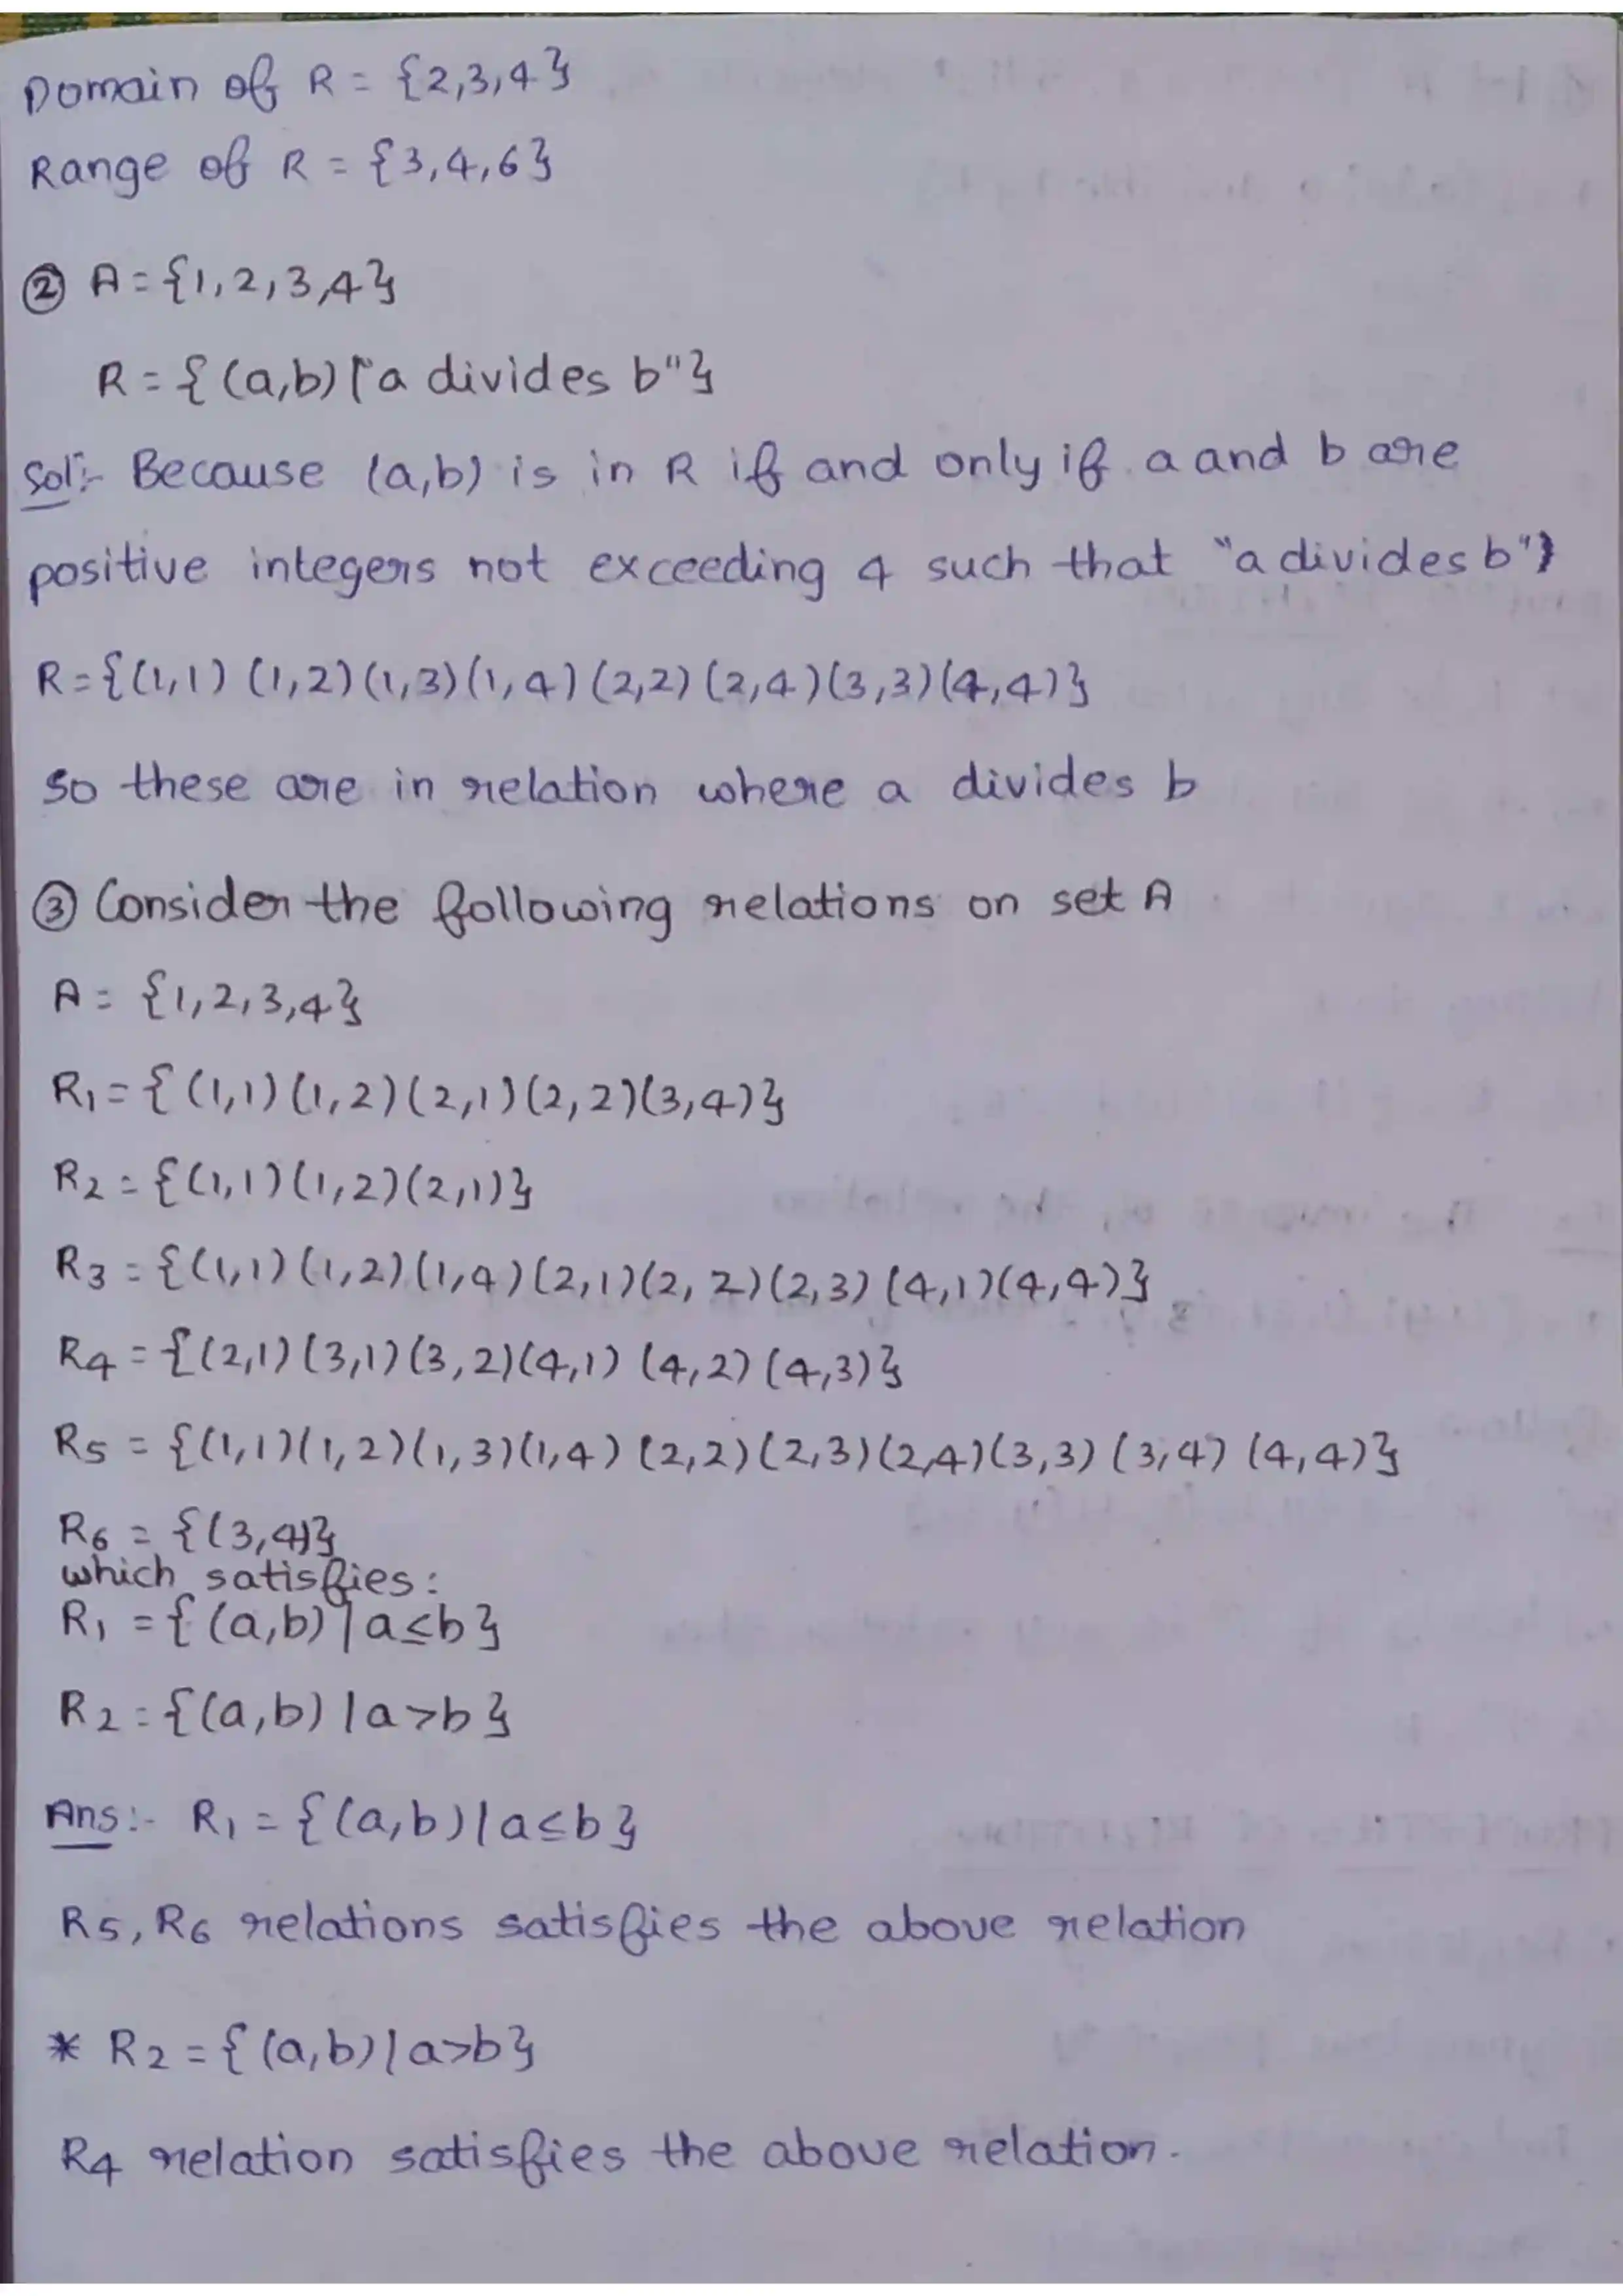 Domain of R = {2,3,4}
Range of R = {3,4,6}
② A = {1,2,3,4}
R = { (a,b) | "a divides b" }
Sol:- Because (a,b) is in R if and only if a and b are
positive integers not exceeding 4 such that "a divides b"}
R = {(1,1) (1,2) (1,3) (1,4) (2,2) (2,4) (3,3) (4,4)}
So these are in relation where a divides b
③ Consider the following relations on set A
A = {1,2,3,4}
R₁ = { (1,1) (1,2) (2,1) (2,2) (3,4)}
R₂ = {(1,1) (1,2) (2,1)}
R₃ = {(1,1) (1,2) (1,4) (2,1) (2,2) (2,3) (4,1) (4,4)}
R₄ = {(2,1) (3,1) (3,2) (4,1) (4,2) (4,3)}
R₅ = {(1,1) (1,2) (1,3) (1,4) (2,2) (2,3) (2,4) (3,3) (3,4) (4,4)}
R₆ = {(3,4)}
which satisfies:
R₁ = { (a,b) | a≤b}
R₂ = {(a,b) | a>b}
Ans:- R₁ = { (a,b) | a≤b}
R₅, R₆ relations satisfies the above relation
* R₂ = { (a,b) | a>b}
R₄ relation satisfies the above relation.